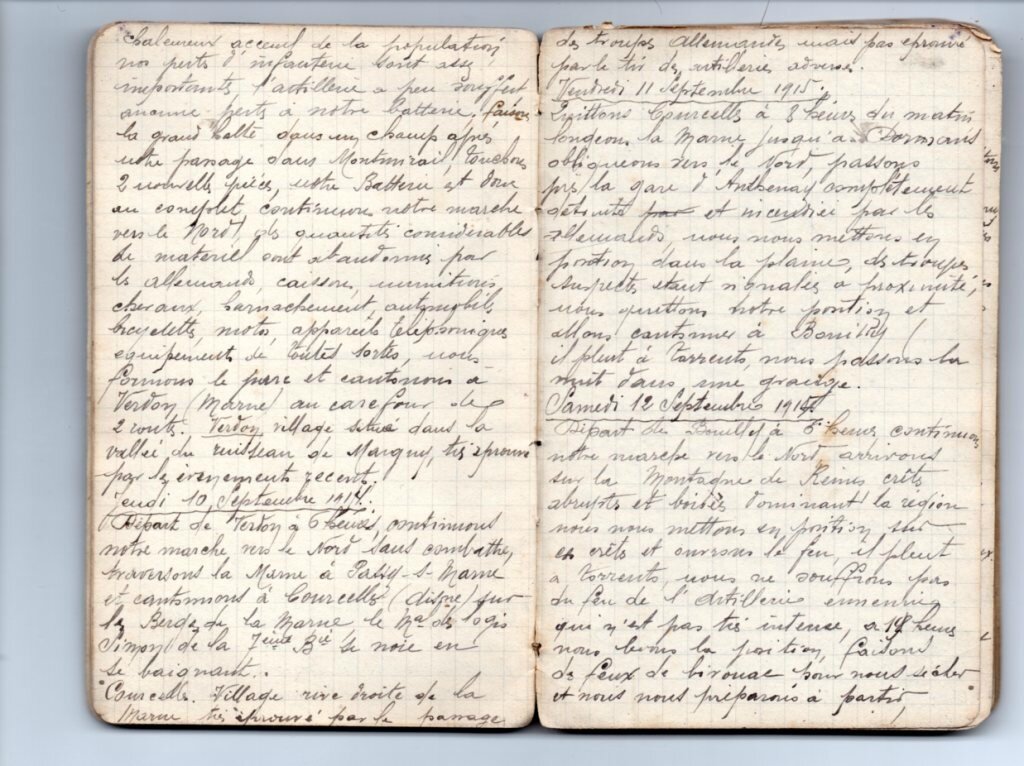 chaleureux acceuil de la population,
nos perts d'infanterie sont asez
importants, l'artillerie a peu souffert
aucune perts à notre Batterie. faisons
la grand halte dans un champ après
notre passage dans Montmirail, touchons
2 nouvelle pièces, notre Batterie est donc
au complet, continuons notre marche
vers le Nord, des quantités considérables
de materiel sont abandonnés par
les allemands, caissons, munitions,
chevaux, harnachement, automobile,
bicyclettes, motos, appareils téléphoniques
equipements de toutes sortes, nous
formons le parc et cantonons à
Verdon (Marne) au carefour de
2 routs. Verdon village situé dans la
vallée du ruisseau de Margny, très éprouvé
par les évènements recents.
Jeudi 10 Septembre 1914.
Départ de Verdon à 6 heures, continuons
notre marche vers le Nord sans combattre,
traversons la Marne à Passy-s-Marne
et cantonnons à Courcelles (Aisne) sur
les Berds de la Marne le Mal des logis
Simon de la 7ème Bie se noie en
se baignant.
Courcelles. Village rive droite de la
Marne très éprouvé par le passage
des troupes Allemandes mais pas eprouvé
par le tir des artileries adverses.
Vendredi 11 Septembre 1915.
Quittons Courcelles à 8 heures du matin
longeons la Marne jusqu'à Dormans
obliqueons vers le Nord, passons
près la gare d'Anthenay complètement
détruite par et incendiée par les
allemands, nous nous mettons en
position dans la plaine, des troupes
suspectes étant signalées a proximité,
nous quittons notre position et
allons cantonner à Bouilly
il pleut à torrents, nous passons la
nuit dans une grange.
Samedi 12 Septembre 1914
Départ de Bouilly à 6 heures, continuons
notre marche vers le Nord, arrivons
sur la Montagne de Reims crêts
abrupts et boisés dominant la région
nous nous mettons en position sur
es crêts et ouvrons le feu, il pleut
a torrents, nous ne souffrons pas
du feu de l'Artillerie ennemie
qui n'est pas très intense, a heures
nous levons la position, faisons
des feux de bivouac pour nous sécher
et nous nous préparons à partir,